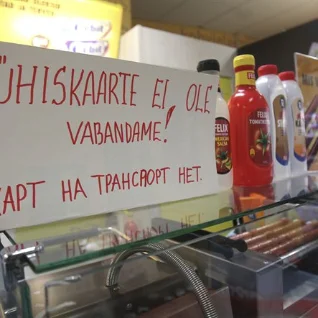 ÜHISKAARTE EI OLE
VABANDAME!
КАРТ НА ТРАНСПОРТ НЕТ.
FELIX
FELIX